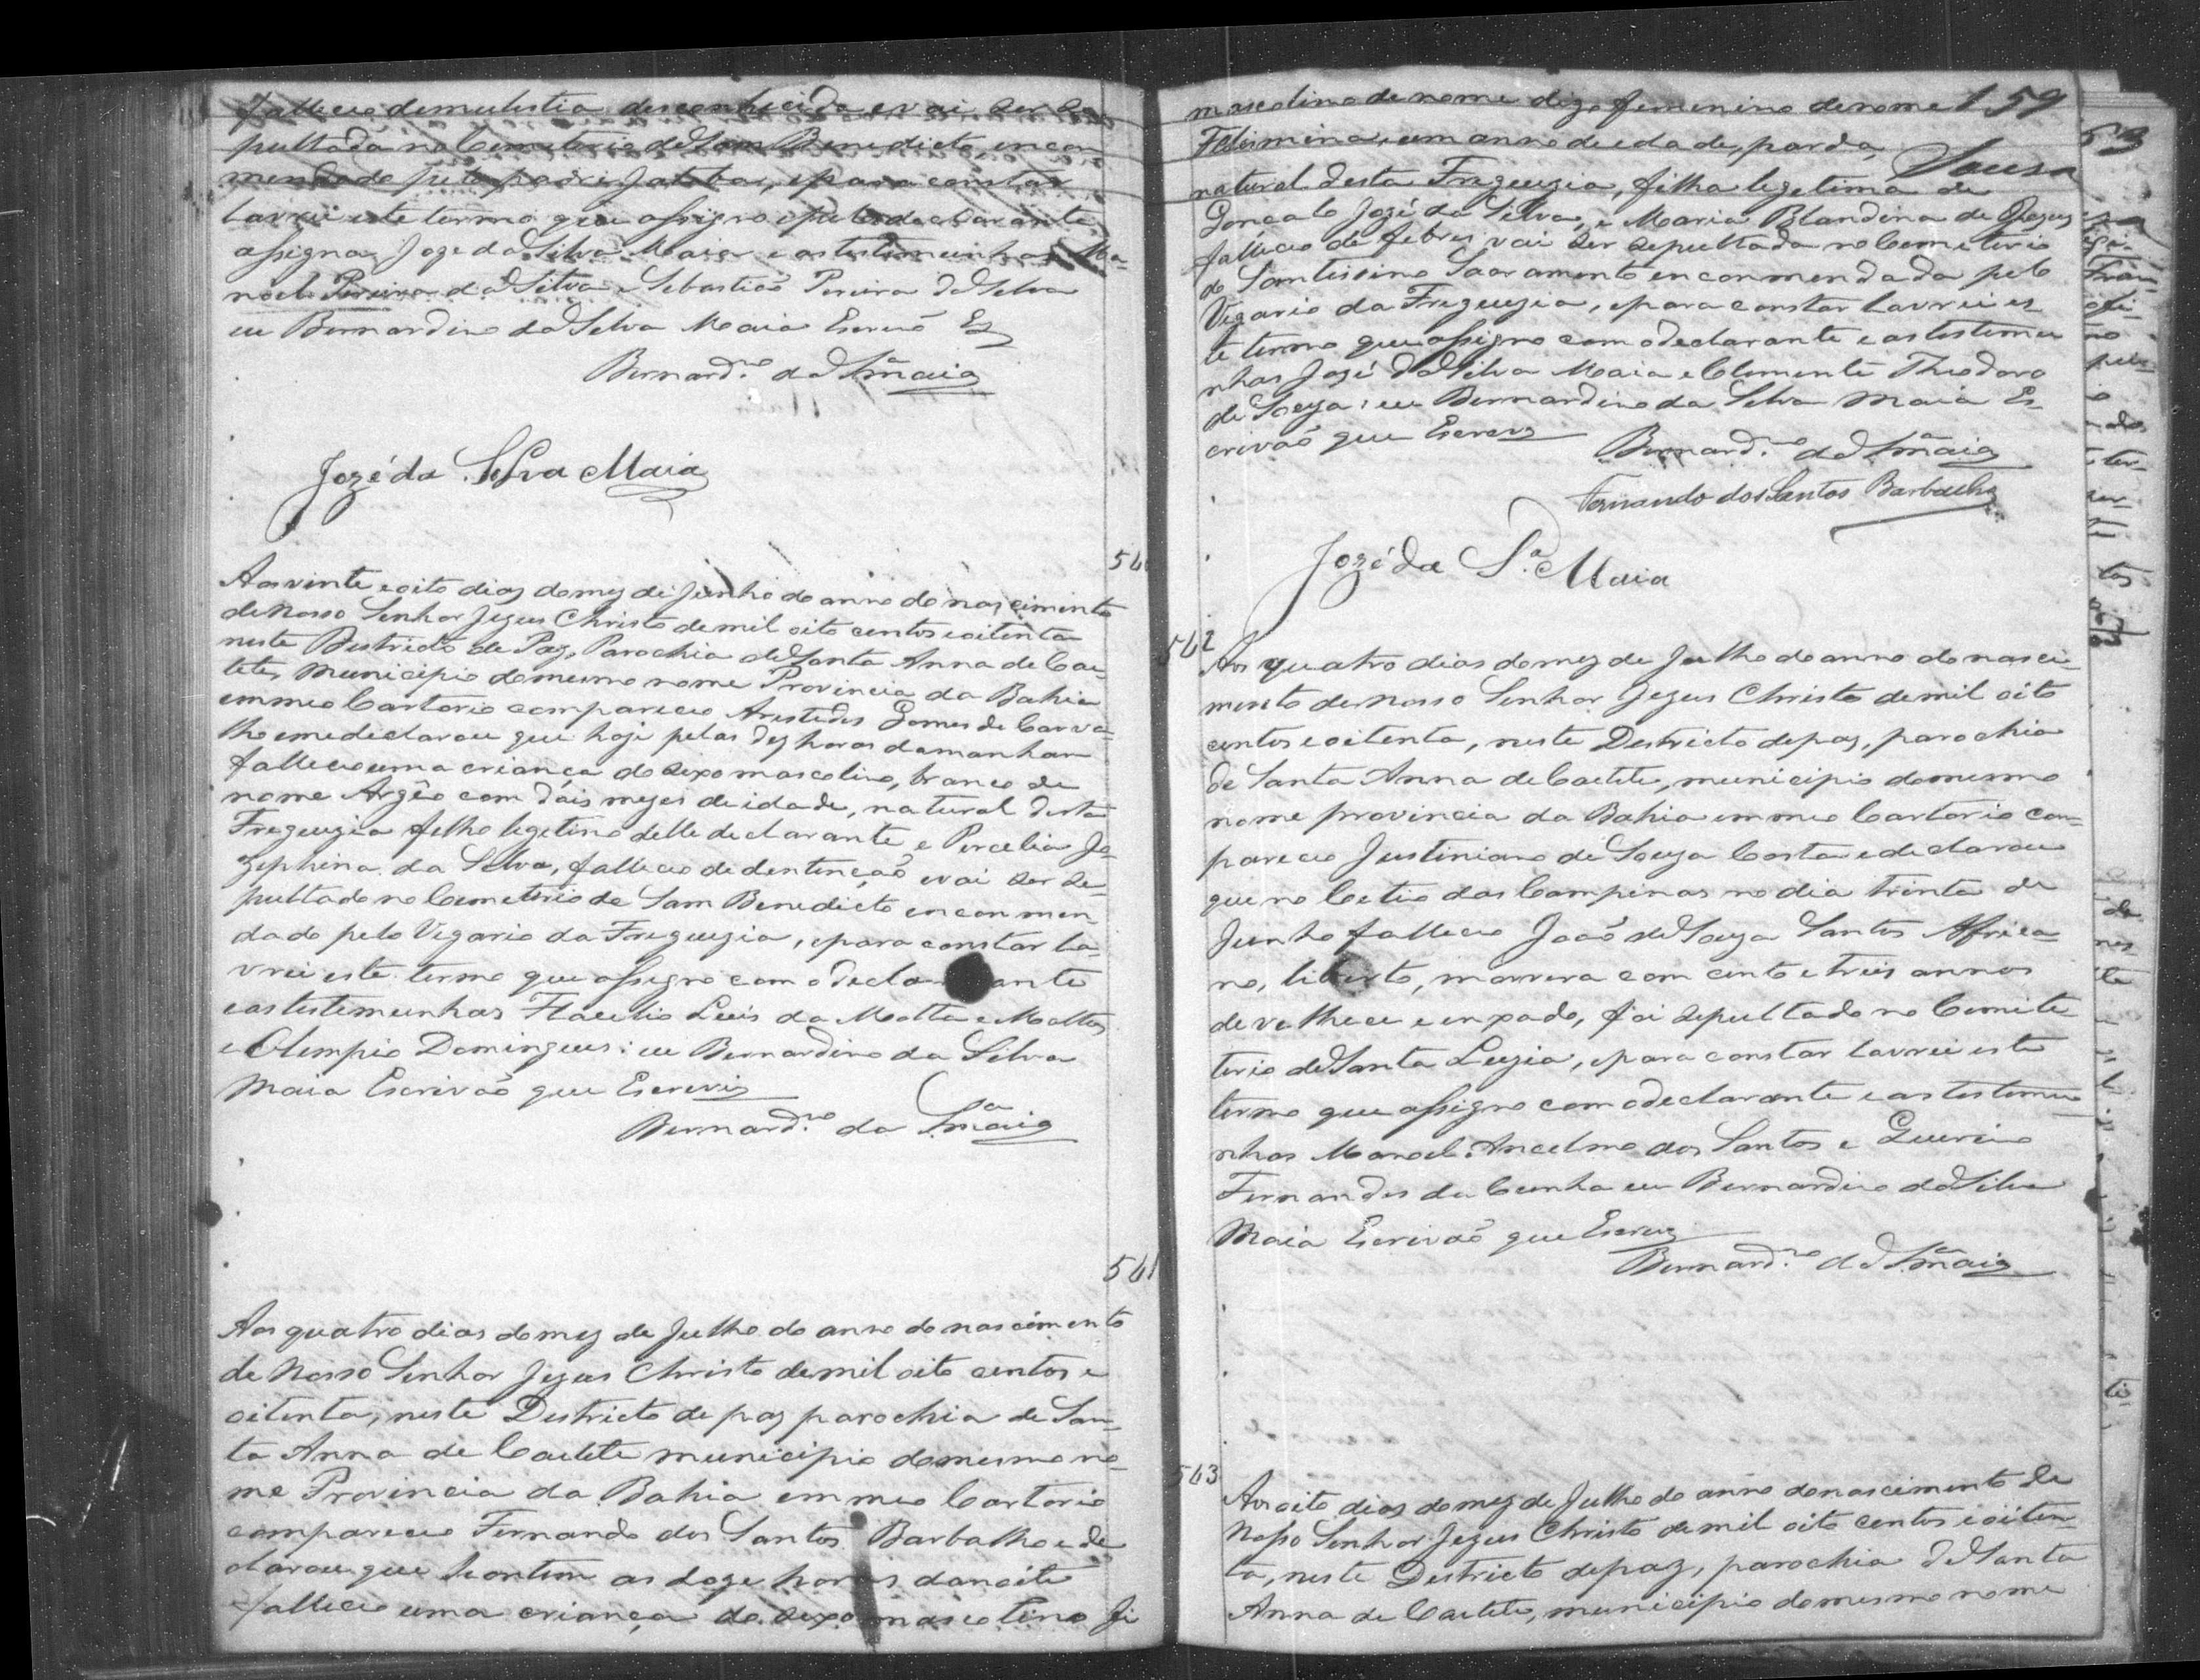 falleceo demulestia desconhecida e vai ser se
pultada no Cemeterio de Sam Benedicto, encon
mendada pelo padre Jatoba, epara constar
lavrei este termo que assigno e pelo declarante
assigna Joze da Silva Maia e as testimunhas Ma-
noel Pereira da Silva e Sebastião Pereira da Silva
eu Bernardino da Silva Maia Escrivã Es
Bernard.no da S.a Maia
Jozé da Silva Maia
54
Aos vinte e oito dias do mez de Junho do anno do nascimento
de Nosso Senhor Jezus Christo de mil oito centos e oitenta
neste Destricto de Paz, Parochia de Santa Anna de Cae-
tete, Municipio do mesmo nome Provincia da Bahia
em meo Cartorio compareceo Aristides Gomes de Carva-
lho e me declarou que hoje pelas dez horas da manham
falleceo uma criança do sexo mascolino, branco de
nome Argêo com dois mezes de idade, natural desta
Freguezia filho legetino delle declarante e Percelia Jo-
zephina da Silva, falleceo de dentenção e vai ser se-
pultado no Cemeterio de Sam Benedicto enconmen
dado pelo Vigario da Freguezia, epara constar la-
vrei este termo que assigno com o declarante
e as testemunhas Flacelio Luis da Motta e Mattos
e Olimpio Domingues: eu Bernardino da Silva
Maia Escrivão que Escrevi
Bernard.no da S.a Maia
541
Aos quatro dias do mez de Julho do anno do nascimento
de Nosso Senhor Jezus Christo de mil oito centos e
oitenta, neste Destricto de paz parochia de San-
ta Anna de Caetete municipio do mesmo no-
me Provincia da Bahia em meo Cartorio
compareceo Fernando dos Santos Barbalho e de
clarou que hontem as doze horas da noite
falleceo uma criança do sexo mascolino fi
159
mascolino de nome digo femenino de nome
Felismina, um anno de edade, parda,
Sousa
natural desta Freguezia, filha legetima de
Gonçalo Jozé da Silva, e Maria Blandina de Jezus
falleceo de febres vai ser sepultada no Cemeterio
do Santissimo Sacramento enconmendada pelo
Vigario da Freguezia, epara constar lavrei es
te termo que assigno com o declarante e as testemu
nhas Jozé da Silva Maia e Clemente Theodoro
de Souza: eu Bernardino da Silva Maia Es
crivão que Escrevi
Bernard.no da S.a Maia
Fernando dos Santos Barbalho
Jozé da S.a Maia
542
Aos quatro dias do mez de Julho do anno do nasci-
mento de Nosso Senhor Jezus Christo de mil oito
centos e oitenta, neste Destricto de paz, parochia
de Santa Anna de Caetete, municipio do mesmo
nome provincia da Bahia em meo Cartorio com-
pareceo Justiniano de Souza Costa e declarou
que no Cetio das Campinas no dia trinta de
Junho falleceo João de Souza Santos Africa-
no, liberto, morrera com cento e treis annos
de velhece e enxado, foi sepultado no Cemite
terio de Santa Luzia, epara constar lavrei este
termo que assigno com o declarante e as testemu-
nhas Manoel Ancelmo dos Santos e Querino
Fernandes da Cunha eu Bernardino da Silva
Maia Escrivão que Escrevi
Bernard.no da S.a Maia
543
Aos oito dias do mez de Julho do anno do nascimento de
Nosso Senhor Jezus Christo de mil oito centos e oiten-
ta, neste Destricto de paz, parochia de Santa
Anna de Caetete, municipio do mesmo nome